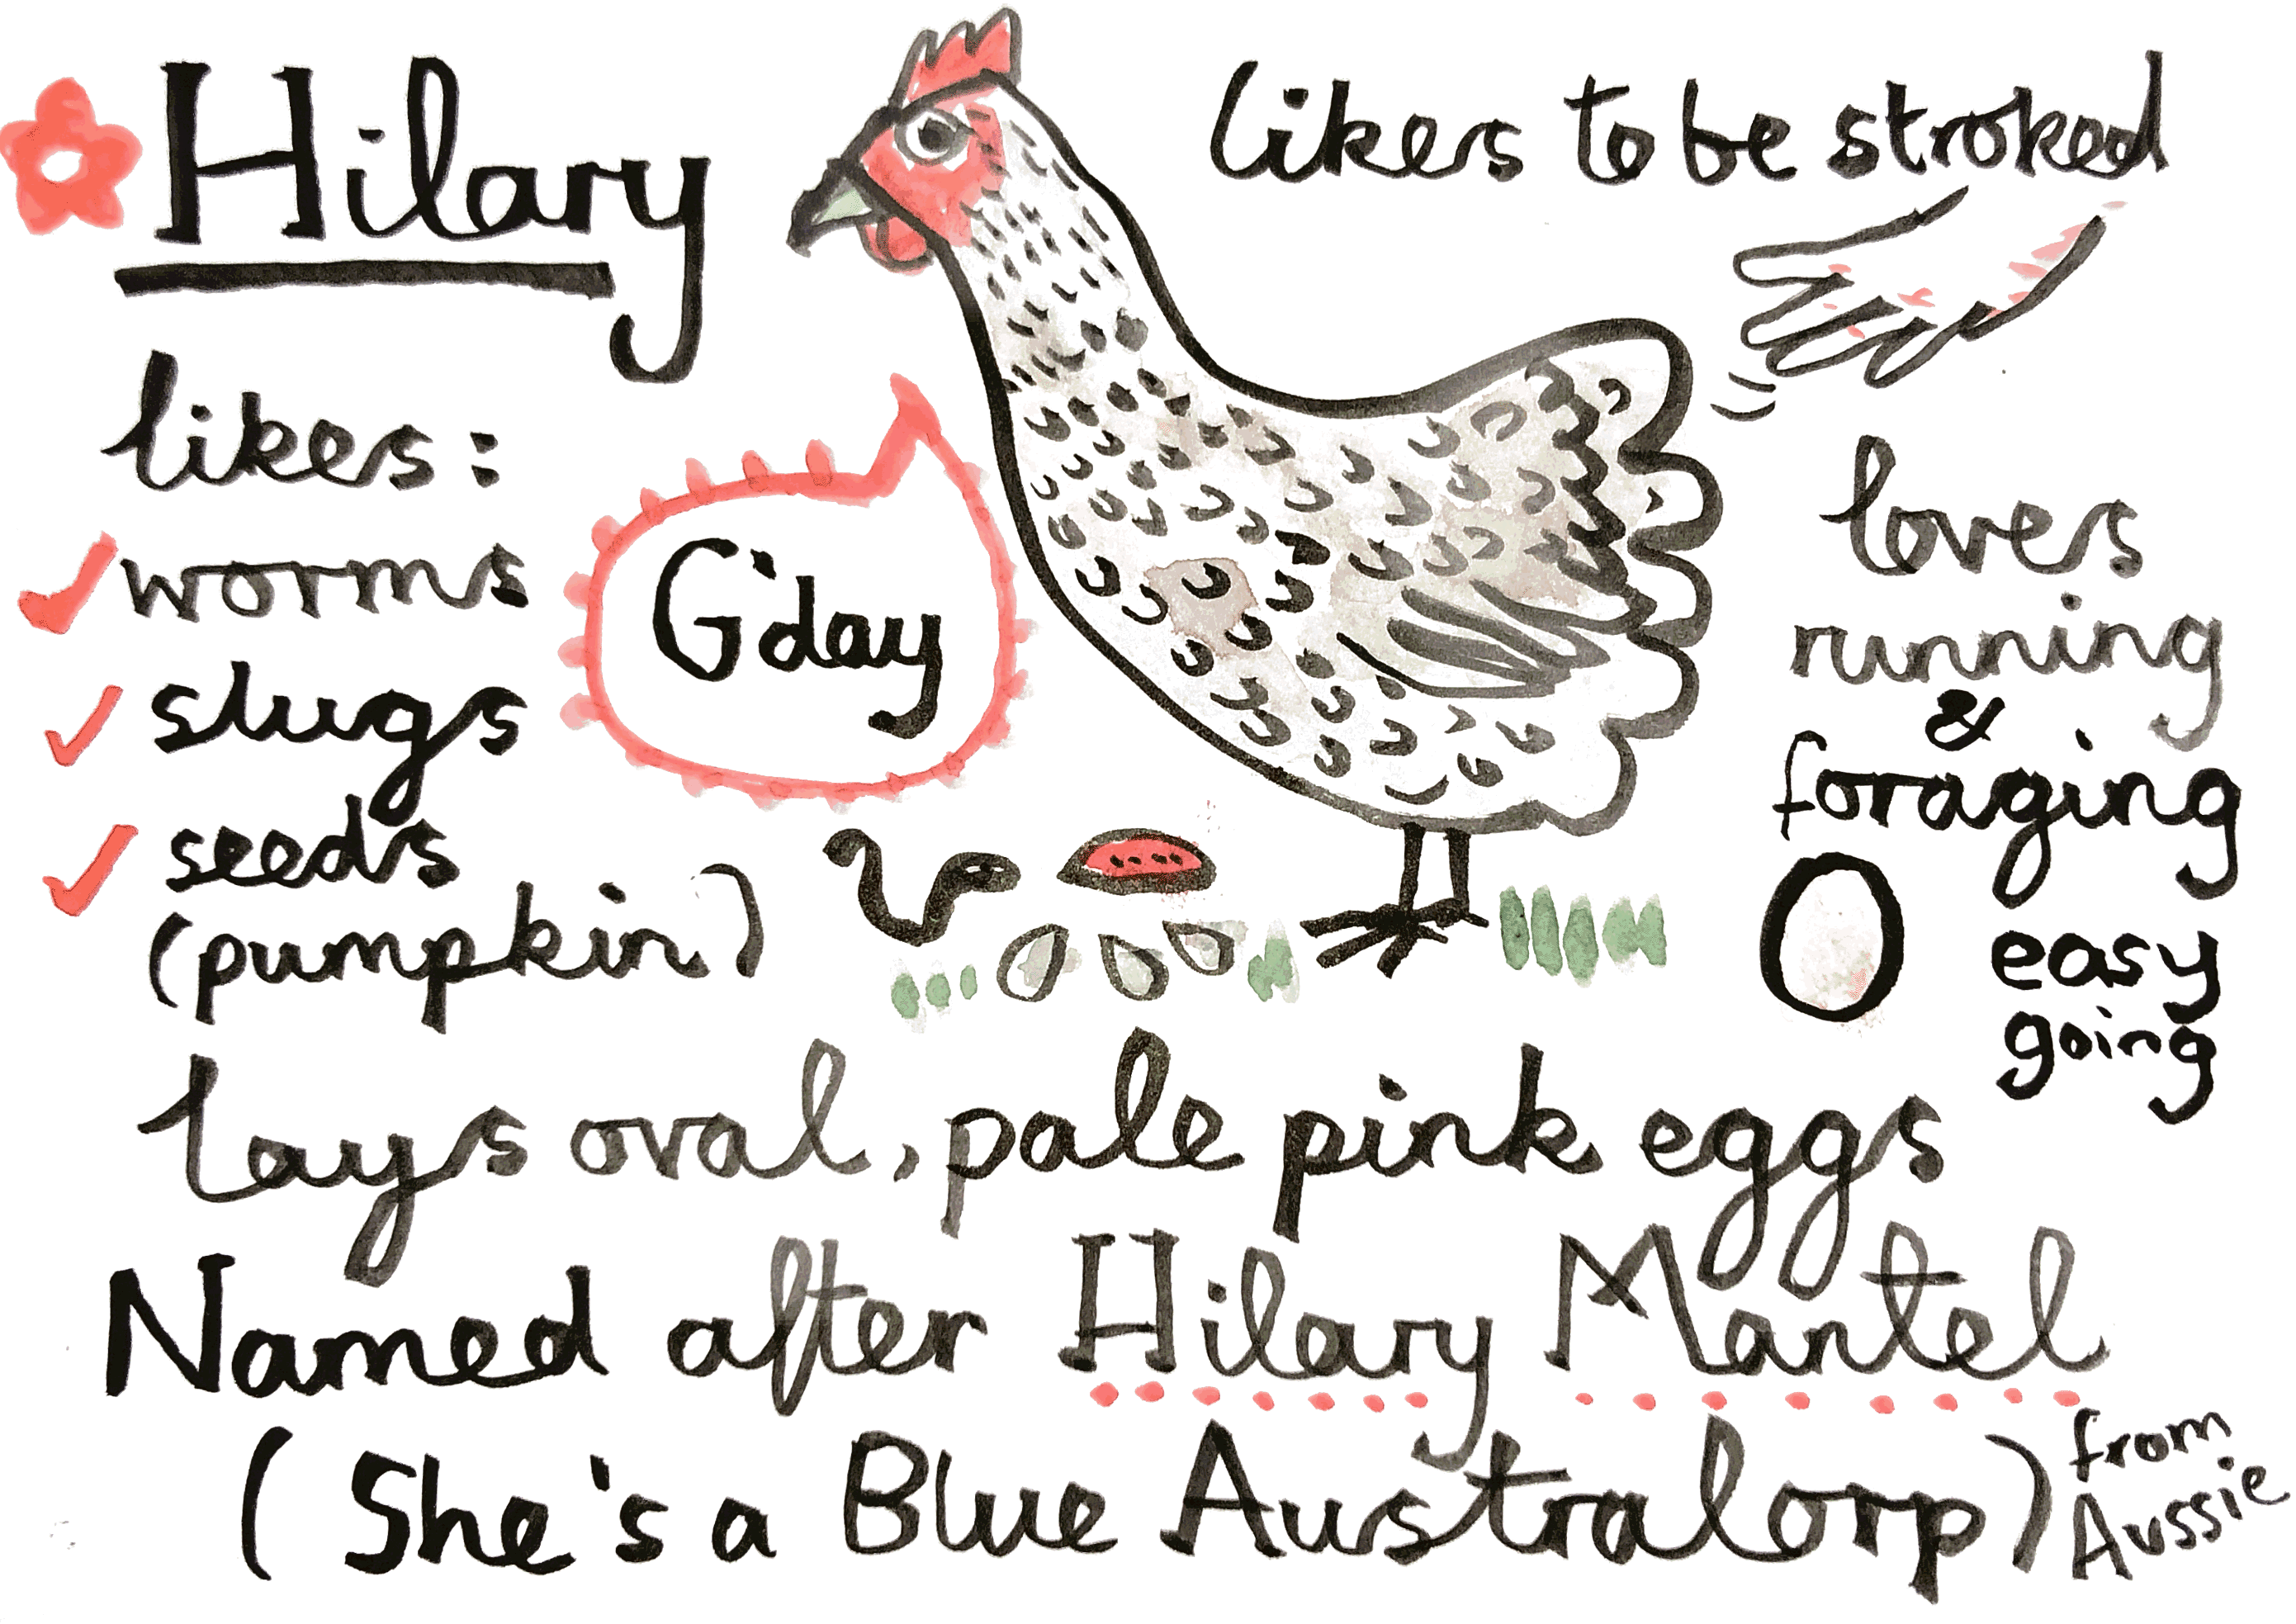 Hilary
likes to be stroked
likes:
worms
slugs
seeds
(pumpkin)
G'day
loves
running
&
foraging
easy
going
lays oval, pale pink eggs
Named after Hilary Mantel
(She's a Blue Australorp)
from
Aussie